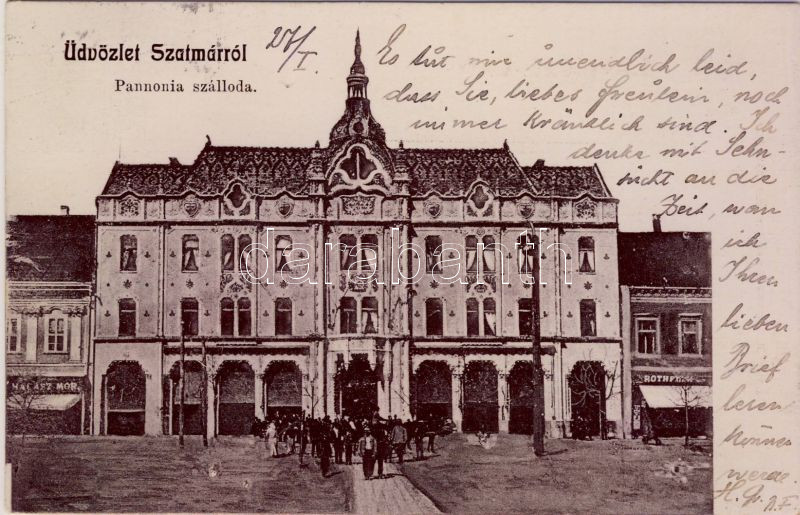 Üdvözlet Szatmárról
Pannonia szálloda.
27/I
Es tut mir unendlich leid,
dass Sie, liebes Freulein, noch
immer kränklich sind. Ich
denke mit Sehn-
sucht an die
Zeit, wan
ich
Ihren
lieben
Brief
lesen
können
werde.
darabanth
HALÁSZ MÓR
ROTH